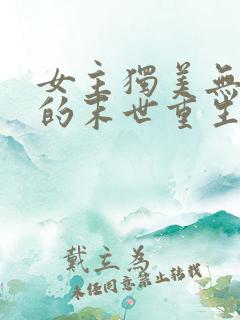 女主獨美無
的末世重生
戴立為
未經同意禁止轉載